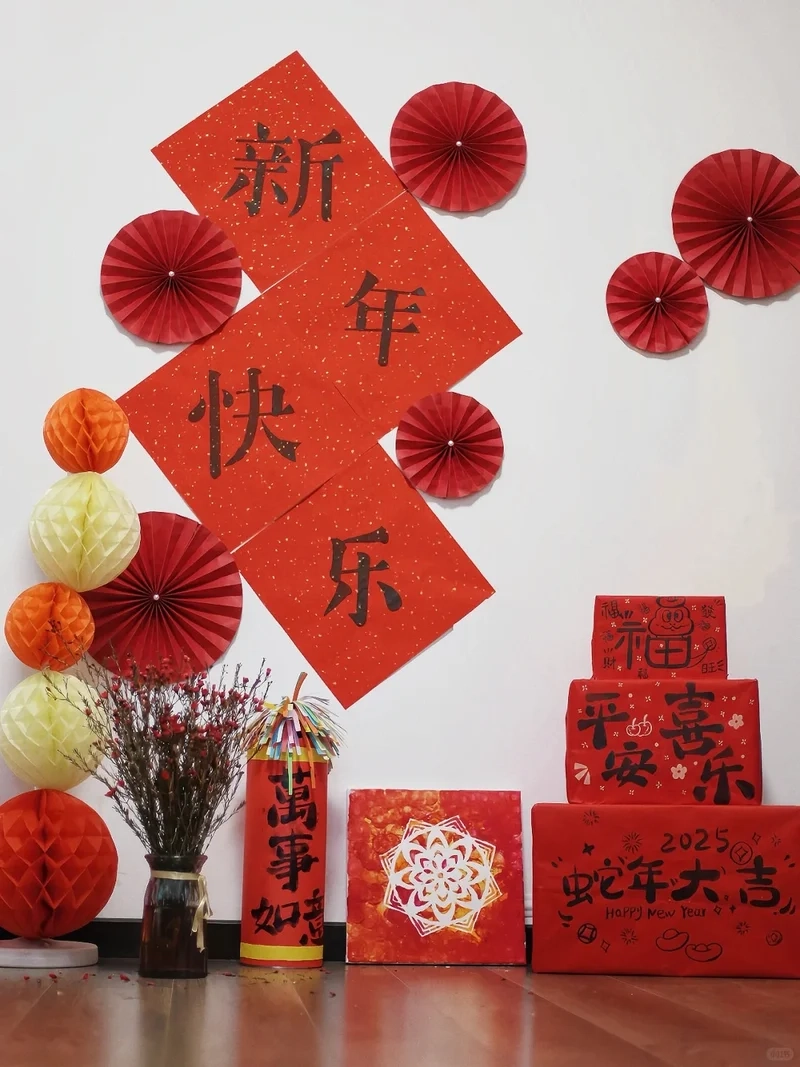 新
年
快
乐
萬事如意
福
旺
平安喜乐
2025
蛇年大吉
Happy New Year